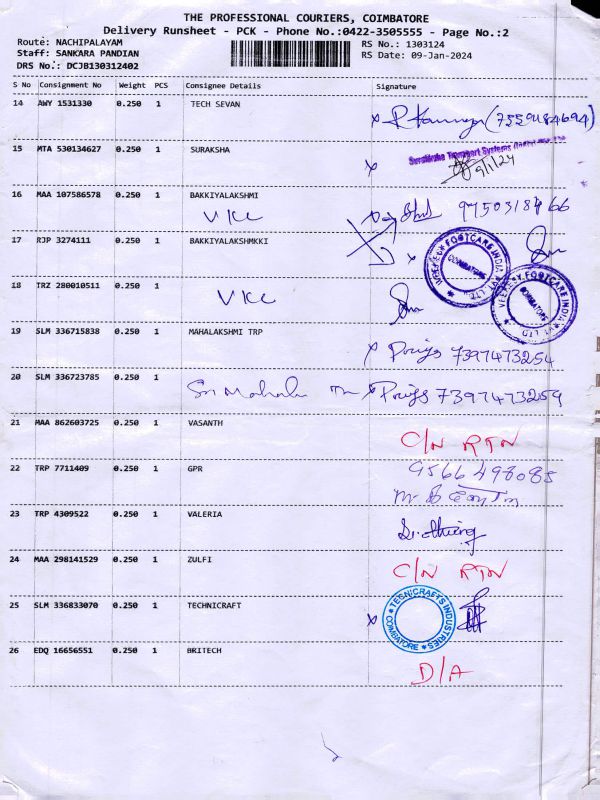 THE PROFESSIONAL COURIERS, COIMBATORE
Delivery Runsheet - PCK - Phone No.:0422-3505555 - Page No.:2
Route: NACHIPALAYAM
Staff: SANKARA PANDIAN
DRS No.: DCJB130312402
RS No.: 1303124
RS Date: 09-Jan-2024
S No Consignment No Weight PCS Consignee Details Signature
14 AWY 1531330 0.250 1 TECH SEVAN
x (7559184694)
15 MTA 530134627 0.250 1 SURAKSHA
x 9/1/24
16 MAA 107586578 0.250 1 BAKKIYALAKSHMI
VKC
17 RJP 3274111 0.250 1 BAKKIYALAKSHMKKI
x
VEEKESY FOOTCARE INDIA PVT. LTD.
COIMBATORE
18 TRZ 280010511 0.250 1
VKC
VEEKESY FOOTCARE INDIA PVT LTD
COIMBATORE
19 SLM 336715838 0.250 1 MAHALAKSHMI TRP
x Priya 7397473254
20 SLM 336723785 0.250 1 Sri Mahalu x Priya 7397473254
21 MAA 862603725 0.250 1 VASANTH
C/N RTN
22 TRP 7711409 0.250 1 GPR
9566498085
23 TRP 4309522 0.250 1 VALERIA
24 MAA 298141529 0.250 1 ZULFI
C/N RTN
25 SLM 336833070 0.250 1 TECHNICRAFT
x TECNICRAFTS INDUSTRIES
COIMBATORE
26 EDQ 16656551 0.250 1 BRITECH
D/A